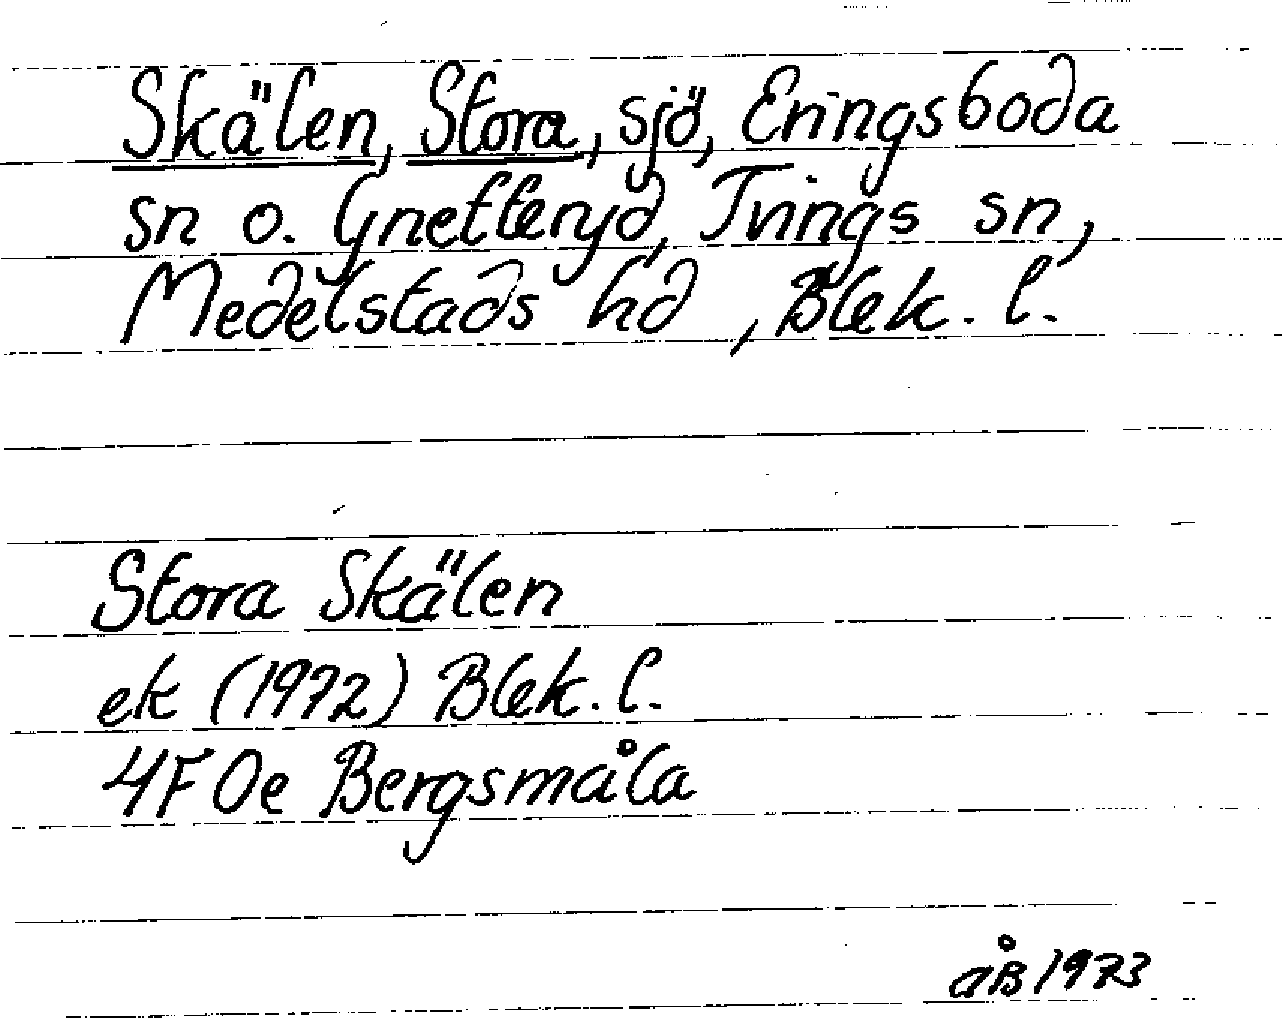 Skälen, Stora, sjö, Eringsboda
sn o. Gnetteryd, Tvings sn,
Medelstads hd, Blek. l.
Stora Skälen
ek (1972) Blek. l.
4F0e Bergsmåla
åB 1973